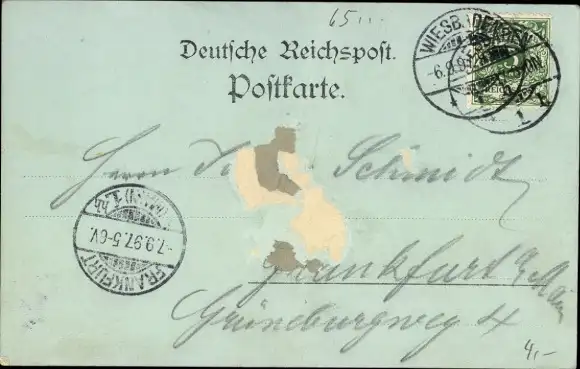 65...
Deutsche Reichspost.
Postkarte.
WIESBADEN
-6.9.97
Herrn Schmidt
FRANKFURT (MAIN) 1.
-7.9.97.5-6V.
Frankfurt a/Main
Grüneburgweg 4
4,-